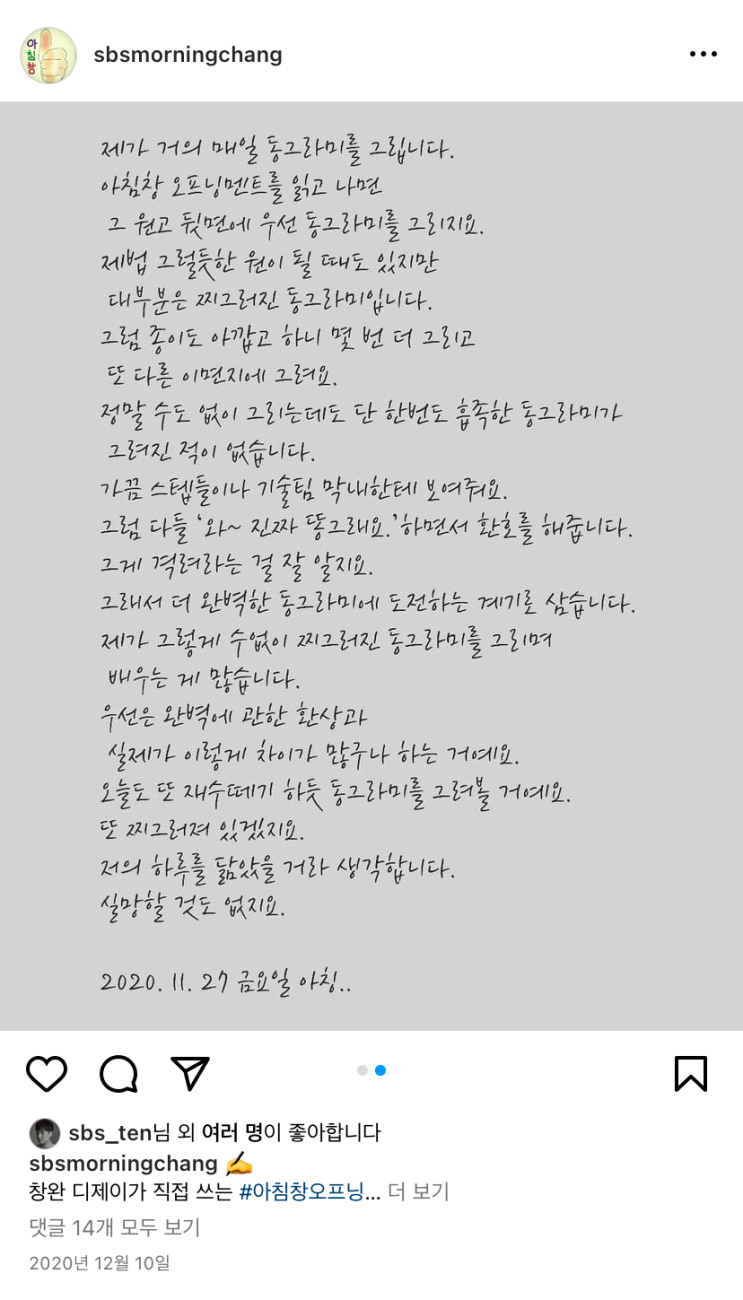 아침창
sbsmorningchang
제가 거의 매일 동그라미를 그립니다.
아침창 오프닝멘트를 읽고 나면
그 원고 뒷면에 우선 동그라미를 그리지요.
제법 그럴듯한 원이 될 때도 있지만
대부분은 찌그러진 동그라미입니다.
그럼 종이도 아깝고 하니 몇 번 더 그리고
또 다른 이면지에 그려요.
정말 수도 없이 그리는데도 단 한번도 흡족한 동그라미가
그려진 적이 없습니다.
가끔 스텝들이나 기술팀 막내한테 보여줘요.
그럼 다들 ‘와~ 진짜 똥그래요.’하면서 환호를 해줍니다.
그게 격려라는 걸 잘 알지요.
그래서 더 완벽한 동그라미에 도전하는 계기로 삼습니다.
제가 그렇게 수없이 찌그러진 동그라미를 그리며
배우는 게 많습니다.
우선은 완벽에 관한 환상과
실제가 이렇게 차이가 많구나 하는 거예요.
오늘도 또 재수떼기 하듯 동그라미를 그려볼 거예요.
또 찌그러져 있겠지요.
저의 하루를 닮았을 거라 생각합니다.
실망할 것도 없지요.
2020. 11. 27 금요일 아칭..
sbs_ten님 외 여러 명이 좋아합니다
sbsmorningchang ✍️
창완 디제이가 직접 쓰는 #아침창오프닝... 더 보기
댓글 14개 모두 보기
2020년 12월 10일